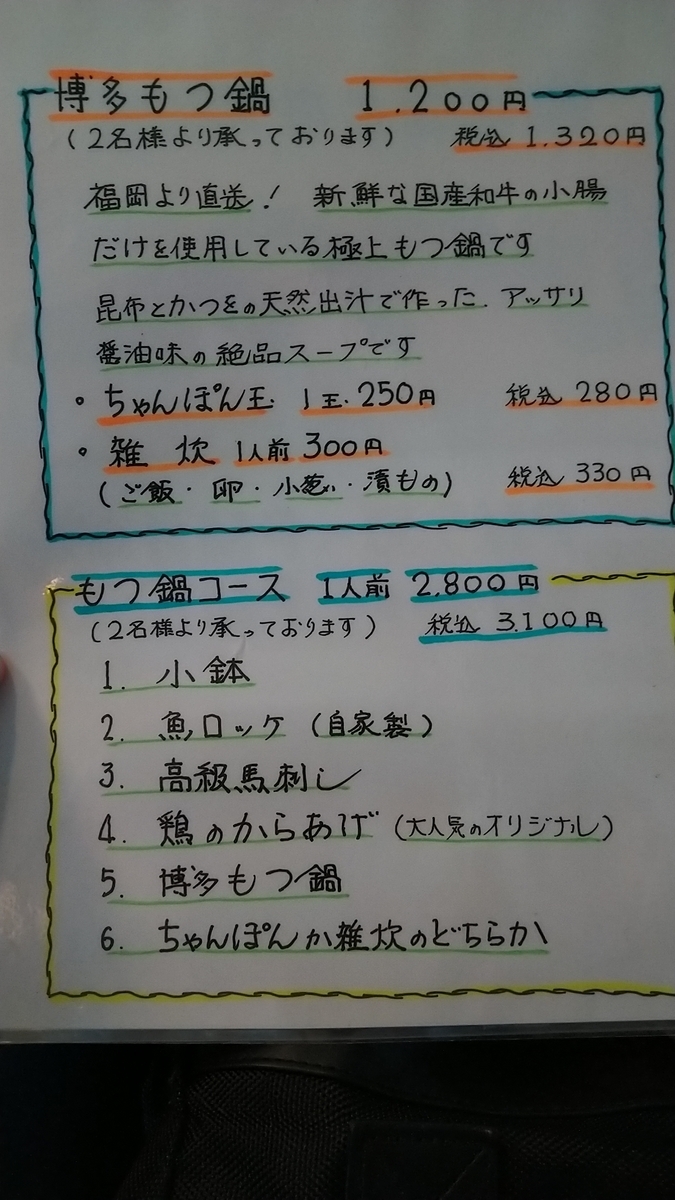 博多もつ鍋 1.200円
(2名様より承っております) 税込 1.320円
福岡より直送! 新鮮な国産和牛の小腸
だけを使用している極上もつ鍋です
昆布とかつをの天然出汁で作った、アッサリ
醤油味の絶品スープです
・ちゃんぽん玉 1玉 250円 税込 280円
・雑炊 1人前 300円
(ご飯・卵・小葱・漬もの) 税込 330円
もつ鍋コース 1人前 2.800円
(2名様より承っております) 税込 3.100円
1. 小鉢
2. 魚ロッケ (自家製)
3. 高級馬刺し
4. 鶏のからあげ (大人気のオリジナル)
5. 博多もつ鍋
6. ちゃんぽんか雑炊のどちらか